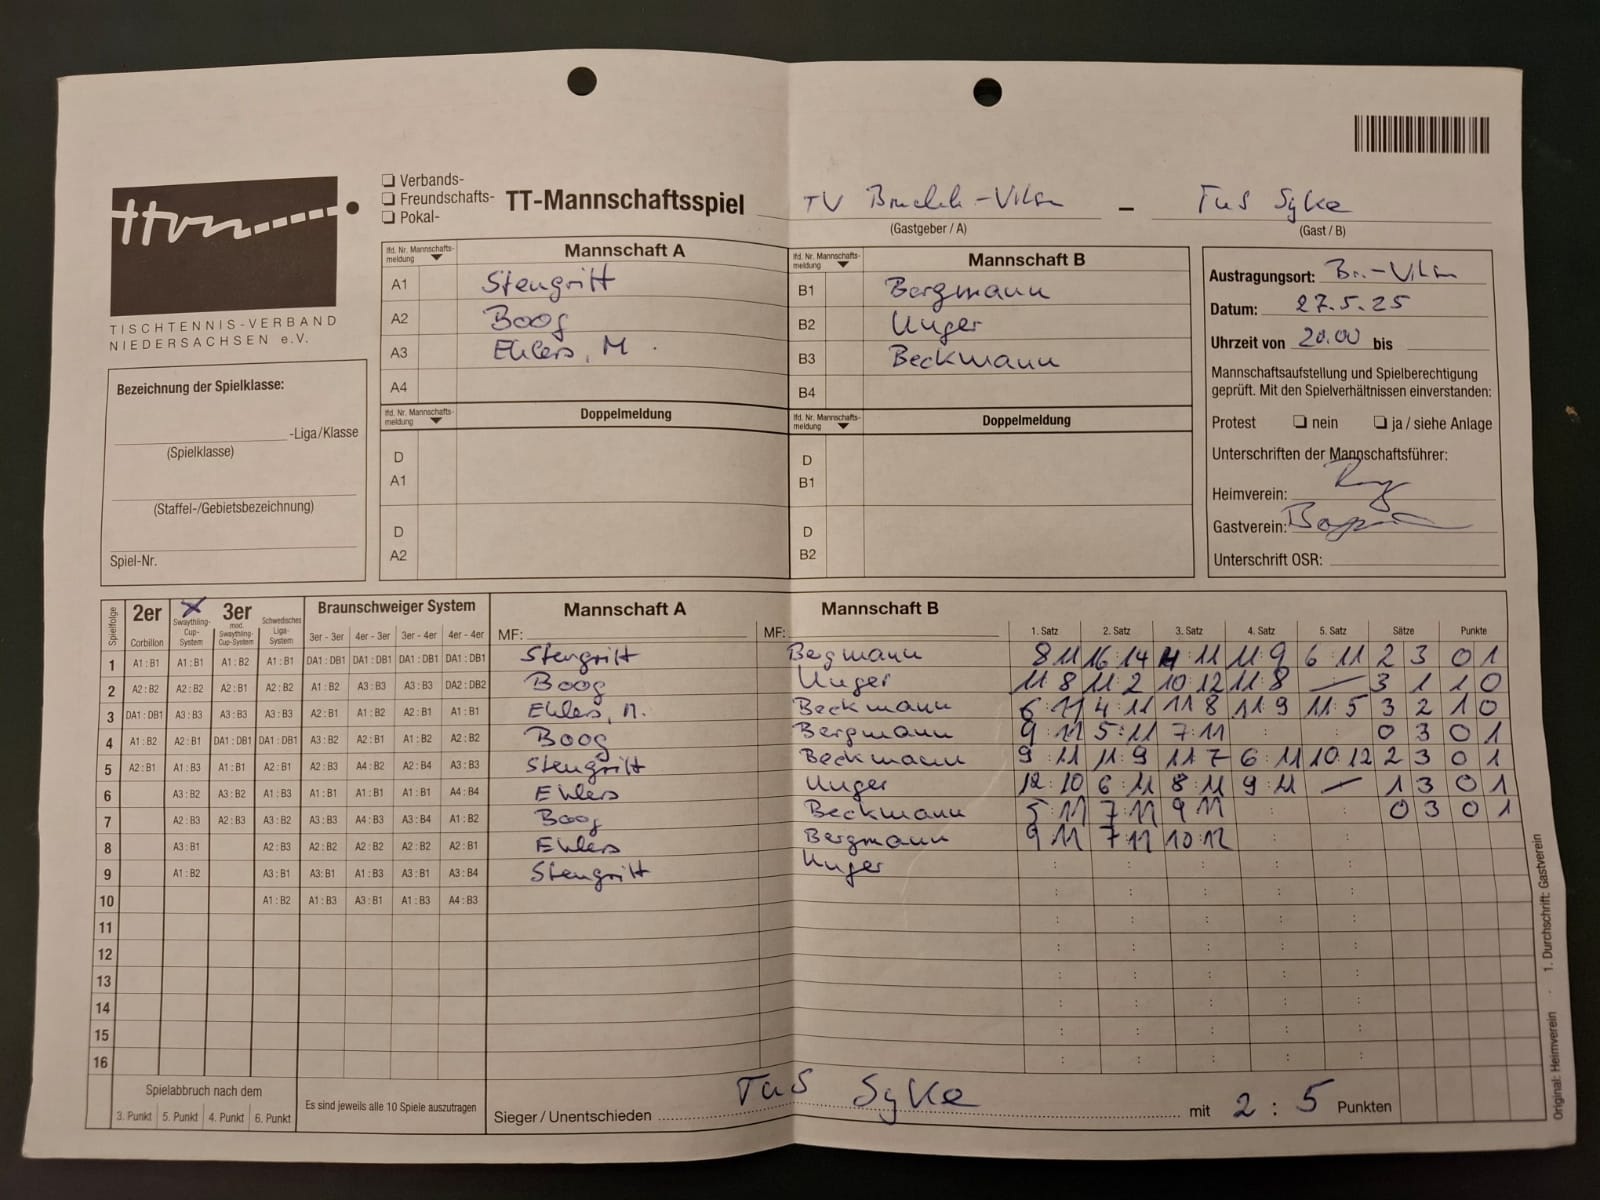 ❏ Verbands-
❏ Freundschafts-
❏ Pokal-
TT-Mannschaftsspiel
TV Bruchh.-Vilsen – TuS Syke
(Gastgeber / A) (Gast / B)
ttvn
TISCHTENNIS-VERBAND
NIEDERSACHSEN e.V.
lfd. Nr. Mannschafts-meldung Mannschaft A
A1 Stengritt
A2 Boog
A3 Ehlers, M.
A4
lfd. Nr. Mannschafts-meldung Doppelmeldung
D A1
D A2
lfd. Nr. Mannschafts-meldung Mannschaft B
B1 Bergmann
B2 Unger
B3 Beckmann
B4
lfd. Nr. Mannschafts-meldung Doppelmeldung
D B1
D B2
Austragungsort: Br.-Vilsen
Datum: 27.5.25
Uhrzeit von 20.00 bis
Mannschaftsaufstellung und Spielberechtigung
geprüft. Mit den Spielverhältnissen einverstanden:
Protest ❏ nein ❏ ja / siehe Anlage
Unterschriften der Mannschaftsführer:
Heimverein:
Gastverein:
Unterschrift OSR:
Bezeichnung der Spielklasse:
-Liga/Klasse
(Spielklasse)
(Staffel-/Gebietsbezeichnung)
Spiel-Nr.
Spielfolge 2er X 3er Braunschweiger System Mannschaft A Mannschaft B
Corbillon Swaythling-Cup-System mod. Swaythling-Cup-System Schwedisches Liga-System 3er - 3er 4er - 3er 3er - 4er 4er - 4er MF: MF: 1. Satz 2. Satz 3. Satz 4. Satz 5. Satz Sätze Punkte
1 A1 : B1 A1 : B1 A1 : B2 A1 : B1 DA1 : DB1 DA1 : DB1 DA1 : DB1 DA1 : DB1 Stengritt Begmann 8 11 16 : 14 4 11 11 9 6 11 2 3 0 1
2 A2 : B2 A2 : B2 A2 : B1 A2 : B2 A1 : B2 A3 : B3 A3 : B3 DA2 : DB2 Boog Unger 11 8 11 2 10 12 11 8 — 3 1 1 0
3 DA1 : DB1 A3 : B3 A3 : B3 A3 : B3 A2 : B1 A1 : B2 A2 : B1 A1 : B1 Ehlers, M. Beckmann 6 11 4 : 11 11 8 11 9 11 : 5 3 2 1 0
4 A1 : B2 A2 : B1 DA1 : DB1 DA1 : DB1 A3 : B2 A2 : B1 A1 : B2 A2 : B2 Boog Bergmann 9 11 5 : 11 7 : 11 0 3 0 1
5 A2 : B1 A1 : B3 A1 : B1 A2 : B1 A2 : B3 A4 : B2 A2 : B4 A3 : B3 Stengritt Beckmann 9 : 11 11 : 9 11 7 6 : 11 10 12 2 3 0 1
6 A3 : B2 A3 : B2 A1 : B3 A1 : B1 A1 : B1 A1 : B1 A4 : B4 Ehlers Unger 12 : 10 6 : 11 8 : 11 9 : 11 — 1 3 0 1
7 A2 : B3 A2 : B3 A3 : B2 A3 : B3 A4 : B3 A3 : B4 A1 : B2 Boog Beckmann 5 : 11 7 : 11 9 11 0 3 0 1
8 A3 : B1 A2 : B3 A2 : B2 A2 : B2 A2 : B2 A2 : B1 Ehlers Bergmann 9 11 7 : 11 10 : 12
9 A1 : B2 A3 : B1 A3 : B1 A1 : B3 A3 : B1 A3 : B4 Stengritt Unger
10 A1 : B2 A1 : B3 A3 : B1 A1 : B3 A4 : B3
11
12
13
14
15
16
Spielabbruch nach dem
3. Punkt 5. Punkt 4. Punkt 6. Punkt
Es sind jeweils alle 10 Spiele auszutragen
Sieger / Unentschieden TuS Syke mit 2 : 5 Punkten
Original: Heimverein · 1. Durchschrift: Gastverein